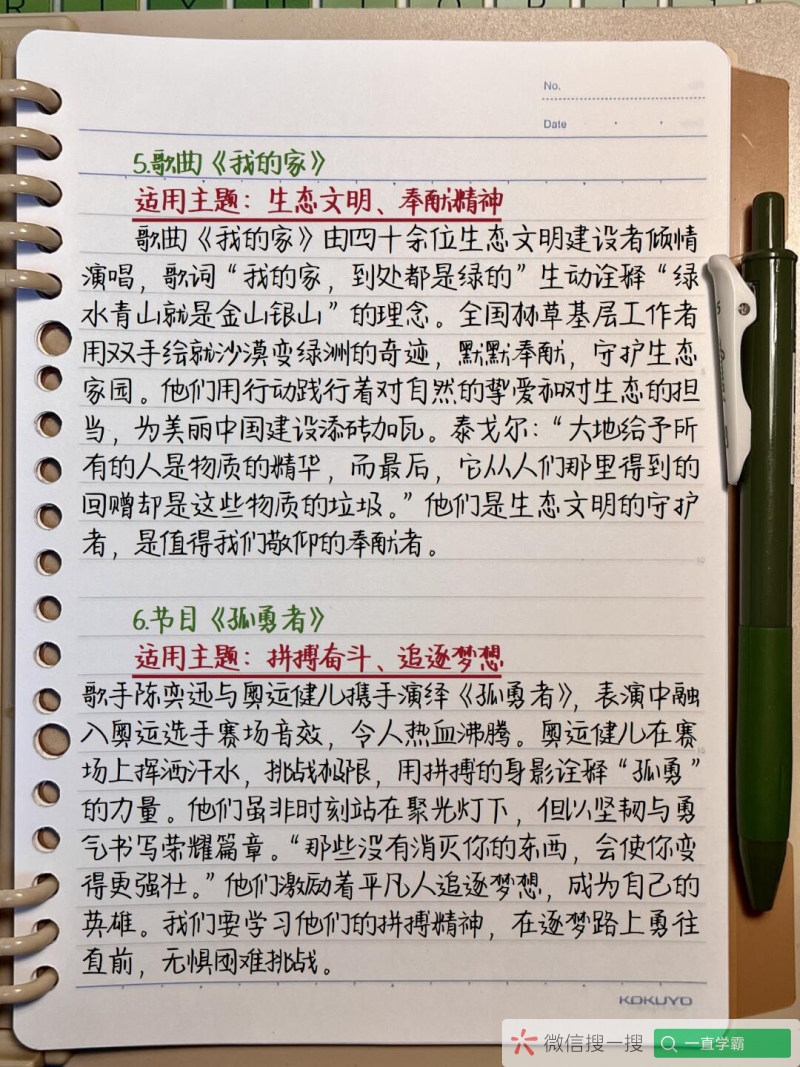 No.
Date
5.歌曲《我的家》
适用主题：生态文明、奉献精神
歌曲《我的家》由四十余位生态文明建设者倾情
演唱，歌词“我的家，到处都是绿的”生动诠释“绿
水青山就是金山银山”的理念。全国林草基层工作者
用双手绘就沙漠变绿洲的奇迹，默默奉献，守护生态
家园。他们用行动践行着对自然的挚爱和对生态的担
当，为美丽中国建设添砖加瓦。泰戈尔：“大地给予所
有的人是物质的精华，而最后，它从人们那里得到的
回赠却是这些物质的垃圾。”他们是生态文明的守护
者，是值得我们敬仰的奉献者。
6.节目《孤勇者》
适用主题：拼搏奋斗、追逐梦想
歌手陈奕迅与奥运健儿携手演绎《孤勇者》，表演中融
入奥运选手赛场音效，令人热血沸腾。奥运健儿在赛
场上挥洒汗水，挑战极限，用拼搏的身影诠释“孤勇”
的力量。他们虽非时刻站在聚光灯下，但以坚韧与勇
气书写荣耀篇章。“那些没有消灭你的东西，会使你变
得更强壮。”他们激励着平凡人追逐梦想，成为自己的
英雄。我们要学习他们的拼搏精神，在逐梦路上勇往
直前，无惧困难挑战。
KOKUYO
微信搜一搜
一直学霸